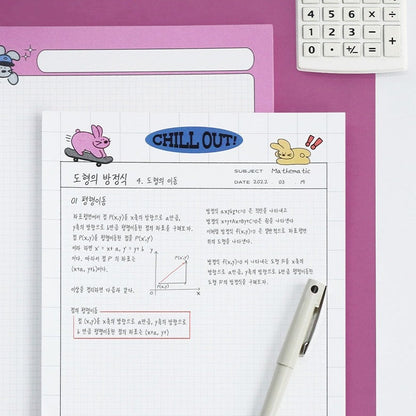 CHILL OUT!
도형의 방정식 4. 도형의 이동
SUBJECT Mathematic
DATE 2022 03 19
01 평행이동
좌표평면에서 점 P(x,y)를 x축의 방향으로 a만큼,
y축의 방향으로 b만큼 평행이동한 점의 좌표를 구해보자.
점 P(x,y)를 평행이동한 점을 P'(x',y')
이라 하면 x' = x+a, y' = y+b
이다. 따라서 점 P'의 좌표는
(x+a, y+b)이다.
이상을 정리하면 다음과 같다.
y
P'(x',y')
P(x,y)
0
x
방정식 ax+by+c=0 은 직선을 나타내고
방정식 x²+y²+Ax+By+C=0 은 원을 나타낸다.
이처럼 방정식 f(x,y)=0 은 일반적으로 좌표평면
위의 도형을 나타낸다.
방정식 f(x,y)=0 이 나타내는 도형 F를 x축의
방향으로 a만큼, y축의 방향으로 b만큼 평행이동한
도형 F'의 방정식을 구해보자.
점의 평행이동
점 (x,y)를 x축의 방향으로 a만큼, y축의 방향으로
b만큼 평행이동한 점의 좌표는 (x+a, y+b)
4 5 6 × ÷
1 2 3 + =
0 · +/- −